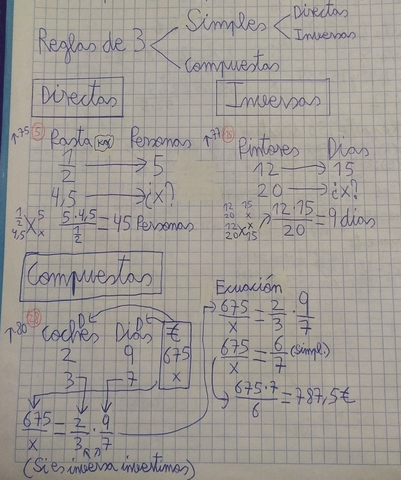 Reglas de 3
Simples
Directas
Inversas
Compuestas
Directas
↑75 5 Pasta (kg) Personas
1/2 → 5
4,5 → ¿x?
1/2 4,5 X 5 x
5·4,5 / 1/2 = 45 Personas
Inversas
↑77 Pintores Días
12 → 15
20 → ¿x?
12/20 15/x
12/20 x x/15
12·15/20 = 9 días
Compuestas
↑80 coches D Días D €
2 9 675
3 7 x
675/x = 2/3 · 9/7
(Si es inversa invertimos)
Ecuación
675/x = 2/3 · 9/7
675/x = 6/7 (simpl.)
675·7/6 = 787,5€